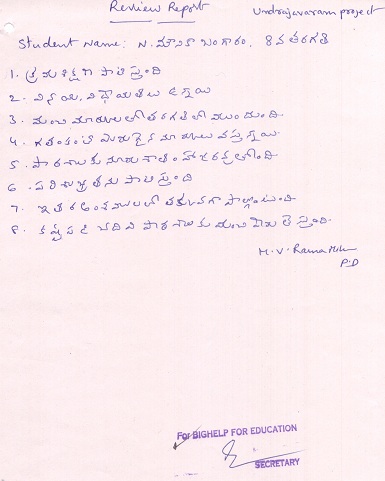 Review Report
Undrajavaram project
Student Name: N. మౌనికా బంగారం, 8 వ తరగతి
1. క్రమశిక్షణ పాటిస్తుంది
2. వినయ, విధేయతలు ఉన్నాయి
3. మంచి మార్కులతో తరగతిలో ముందుంది.
4. గతంకంటె మెరుగైన మార్కులు వస్తున్నాయి.
5. పాఠశాలకు నూరుశాతం హాజరవుతోంది.
6. పరిశుభ్రతను పాటిస్తుంది
7. ఇతర అంశములలో పాల్గొంటుంది.
8. కష్టపడి చదివి పాఠశాలకు మంచిపేరు తెస్తుంది.
M. V. Rama
P.D
For BIGHELP FOR EDUCATION
SECRETARY